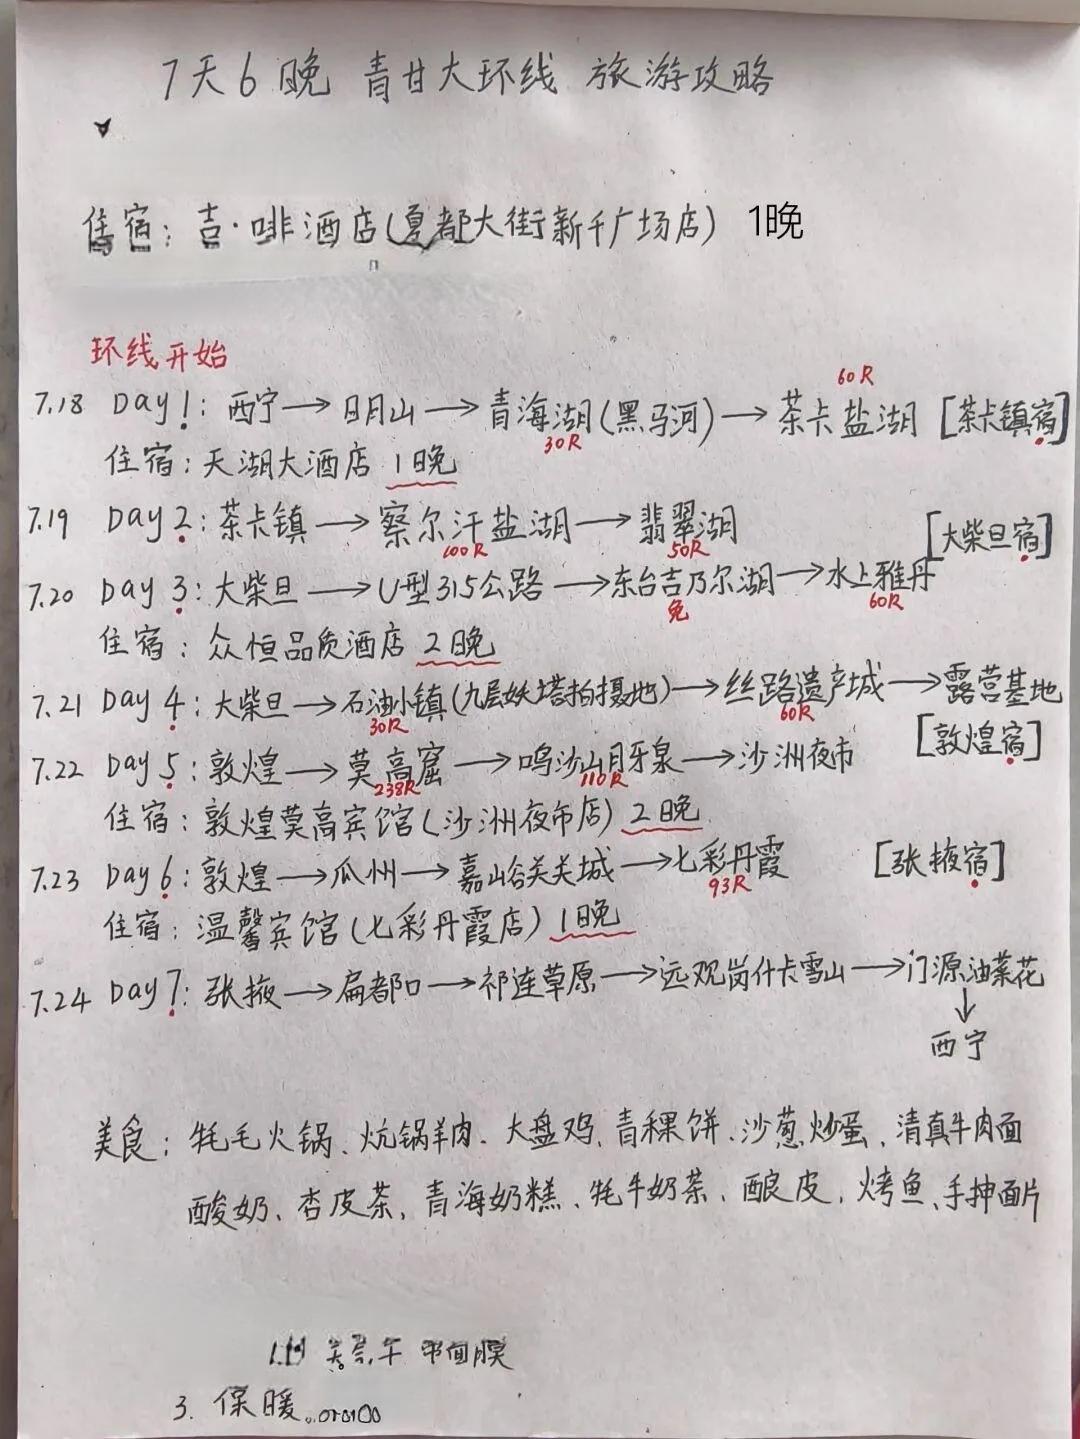 7天6晚 青甘大环线 旅游攻略
住宿：吉·啡酒店(夏都大街新千广场店) 1晚
环线开始
60R
7.18 Day 1：西宁→日月山→青海湖(黑马河)→茶卡盐湖 [茶卡镇宿]
30R
住宿：天湖大酒店 1晚
7.19 Day 2：茶卡镇→察尔汗盐湖→翡翠湖 [大柴旦宿]
100R 50R
7.20 Day 3：大柴旦→U型315公路→东台吉乃尔湖→水上雅丹
免 60R
住宿：众恒品质酒店 2晚
7.21 Day 4：大柴旦→石油小镇(九层妖塔拍摄地)→丝路遗产城→露营基地
30R 60R
[敦煌宿]
7.22 Day 5：敦煌→莫高窟→鸣沙山月牙泉→沙洲夜市
238R 110R
住宿：敦煌莫高宾馆(沙洲夜市店) 2晚
7.23 Day 6：敦煌→瓜州→嘉峪关关城→七彩丹霞 [张掖宿]
93R
住宿：温馨宾馆(七彩丹霞店) 1晚
7.24 Day 7：张掖→扁都口→祁连草原→远观岗什卡雪山→门源油菜花
↓
西宁
美食：牦毛火锅、炕锅羊肉、大盘鸡、青稞饼、沙葱炒蛋、清真牛肉面
酸奶、杏皮茶、青海奶糕、牦牛奶茶、酿皮、烤鱼、手抻面片
面膜
3. 保暖